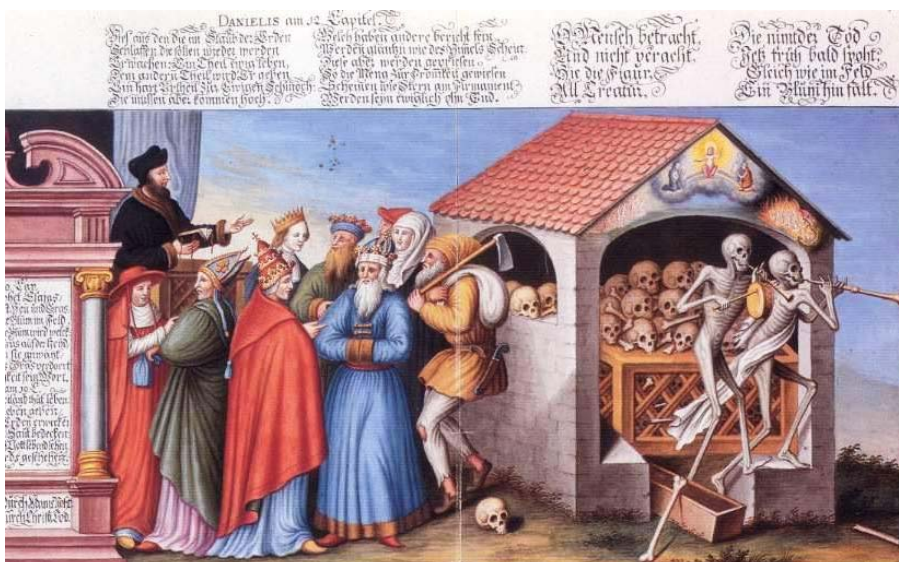 DANIELIS am 12 Capitel.
Vief aus den die im Staub der Erden
Schlaffen die sollen wieder werden
Erwachen: Ein Theil ewig leben,
Dem andern Theil wird Er geben
Ein hart Urtheil zur Ewigen Schmach
Die müssen aber kommen hoch.
Welch haben andere bericht fein
Werden gläntzn wie des Himels Schein
Diese aber werden gepriesen
So die Meng zur Frömkeit gewiesen
Scheinen wie Stern am Firmament
Werden seyn ewiglich ohn End.
O Mensch betracht,
Und nicht veracht,
Hie die Figur,
All Creatur,
Die nimt der Tod
früh bald spoht,
Gleich wie im Feld
Ein Blum hin falt.
im Feld
wird welck
verdorrt
sein Wort.
am 19 C.
hat leben
bedecken